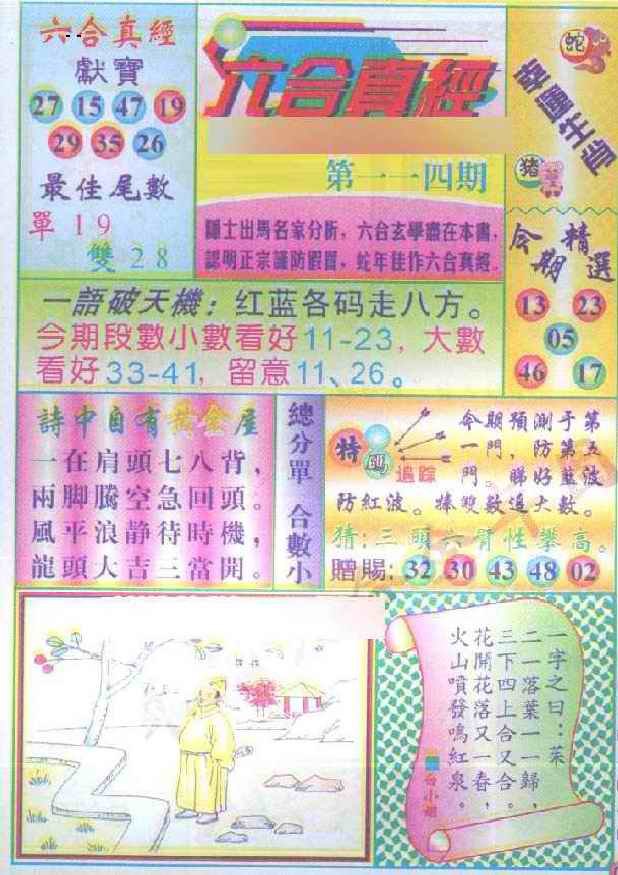 六合真經
獻寶
27 15 47 19
29 35 26
最佳尾數
單 1 9
雙 2 8
六合真經
第一一四期
隱士出馬名家分析，六合玄學盡在本書，
認明正宗謹防假冒，蛇年佳作六合真經。
蛇
猪
今期精選
13 23
05
46 17
一語破天機：红蓝各码走八方。
今期段數小數看好11-23，大數
看好33-41，留意11、26。
詩中自有黃金屋
一在肩頭七八背，
兩脚騰空急回頭。
風平浪静待時機，
龍頭大吉三當開。
總分單 合數小
特
碼
追踪
今期預測于第
一門，防第五
門。睇好藍波
防紅波。捧雙數追大數。
猜：三頭六臂性攀高。
贈賜：32 30 43 48 02
一字之曰：茱
二一落葉一一歸，
三下四上合又合。
花開花落又一春，
火山噴發鳴紅泉。
白小姐